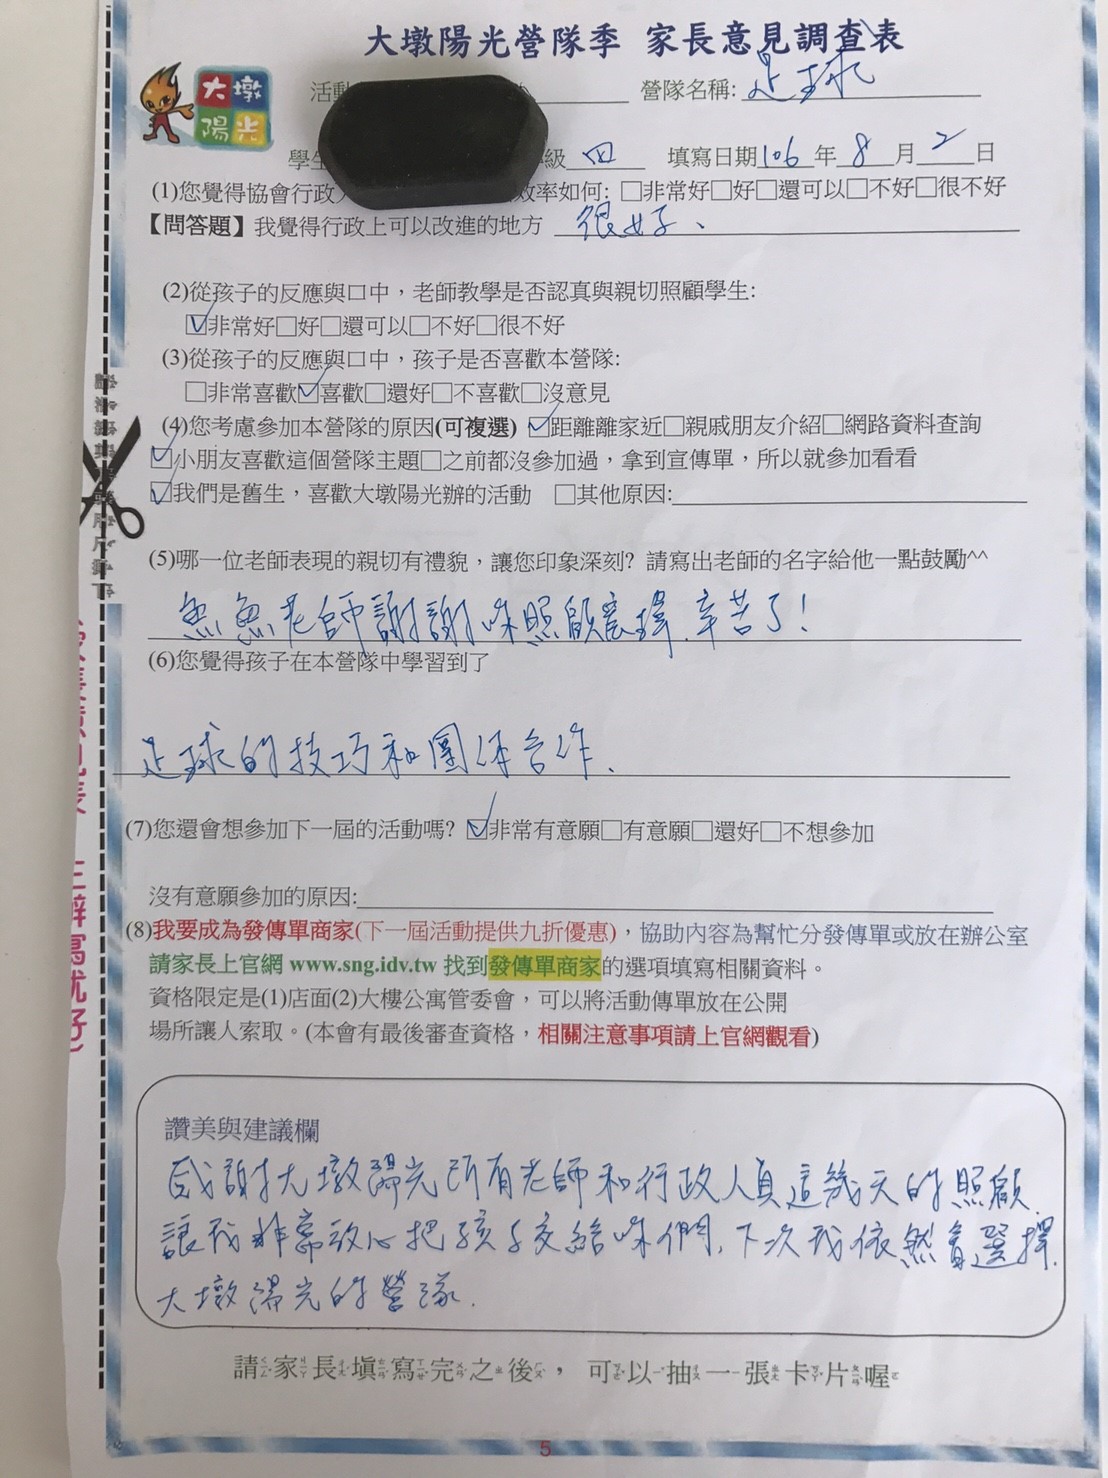 大墩陽光營隊季 家長意見調查表
大墩
陽光
活動 營隊名稱: 足球
學生 級 四 填寫日期 106 年 8 月 2 日
(1)您覺得協會行政 效率如何: □非常好□好□還可以□不好□很不好
【問答題】我覺得行政上可以改進的地方 很好、
(2)從孩子的反應與口中，老師教學是否認真與親切照顧學生:
☑非常好□好□還可以□不好□很不好
(3)從孩子的反應與口中，孩子是否喜歡本營隊:
□非常喜歡☑喜歡□還好□不喜歡□沒意見
(4)您考慮參加本營隊的原因(可複選) ☑距離離家近□親戚朋友介紹□網路資料查詢
☑小朋友喜歡這個營隊主題□之前都沒參加過，拿到宣傳單，所以就參加看看
☑我們是舊生，喜歡大墩陽光辦的活動 □其他原因:
(5)哪一位老師表現的親切有禮貌，讓您印象深刻? 請寫出老師的名字給他一點鼓勵^^
魚魚老師謝謝妳照顧宸瑋.辛苦了!
(6)您覺得孩子在本營隊中學習到了
足球的技巧和團体合作.
(7)您還會想參加下一屆的活動嗎? ☑非常有意願□有意願□還好□不想參加
沒有意願參加的原因:
(8)我要成為發傳單商家(下一屆活動提供九折優惠)，協助內容為幫忙分發傳單或放在辦公室
請家長上官網 www.sng.idv.tw 找到發傳單商家的選項填寫相關資料。
資格限定是(1)店面(2)大樓公寓管委會，可以將活動傳單放在公開
場所讓人索取。(本會有最後審查資格，相關注意事項請上官網觀看)
讚美與建議欄
感謝大墩陽光所有老師和行政人員這幾天的照顧.
讓我非常放心把孩子交給妳們.下次我依然會選擇.
大墩陽光的營隊.
請家長填寫完之後，可以抽一張卡片喔
5